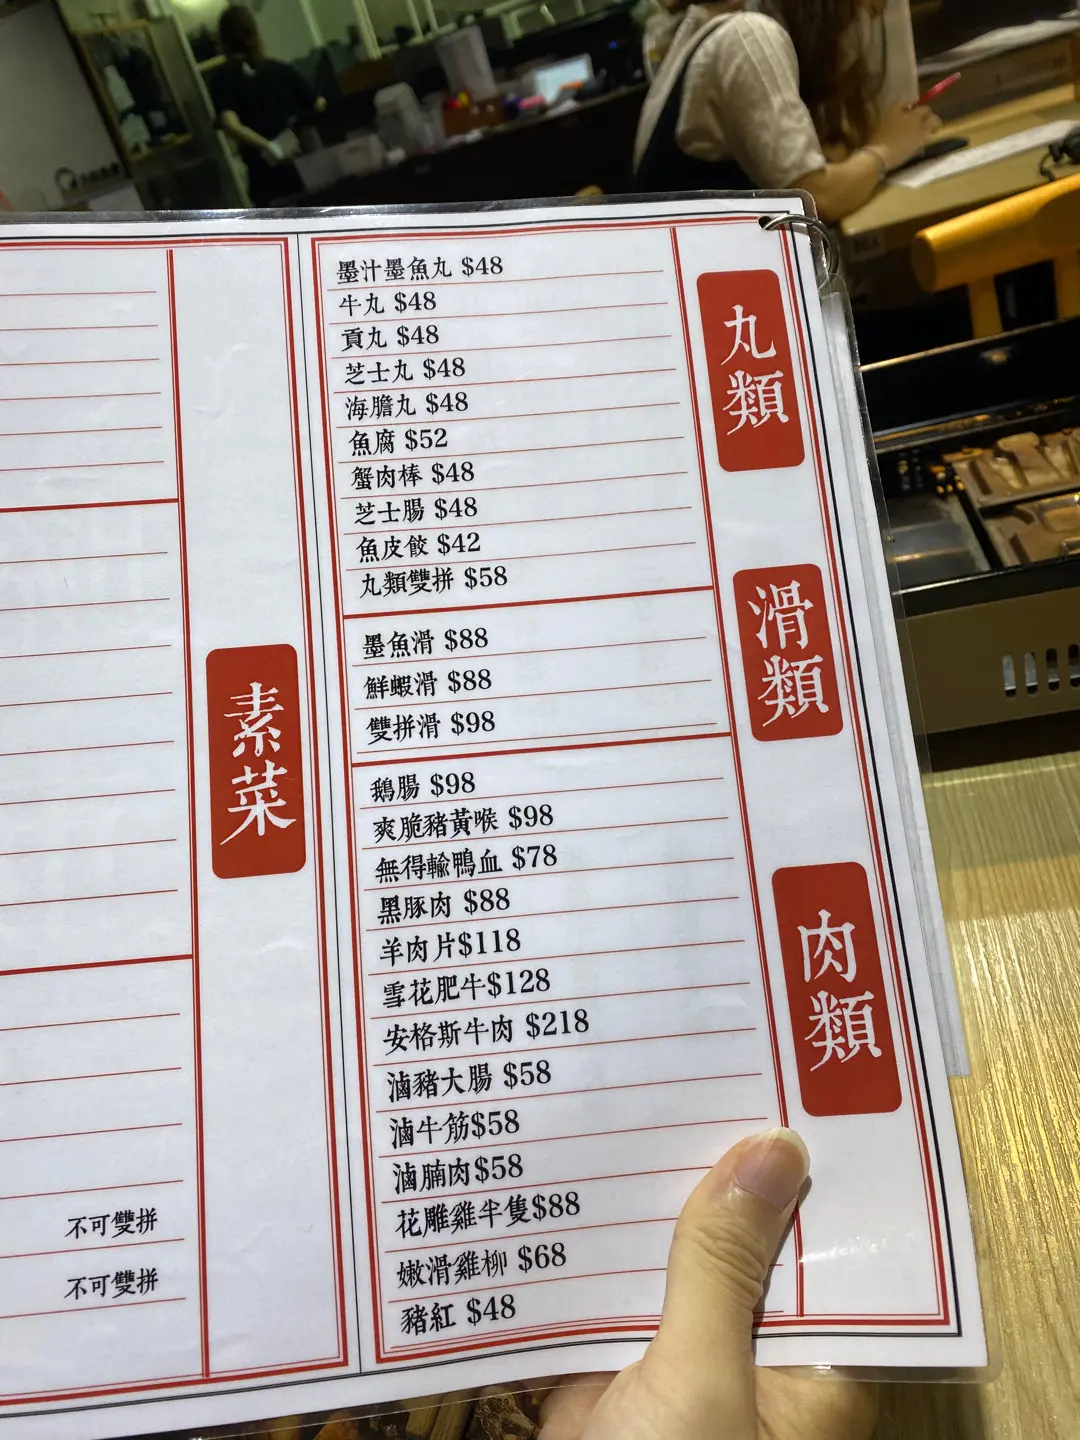 丸類
墨汁墨魚丸 $48
牛丸 $48
貢丸 $48
芝士丸 $48
海膽丸 $48
魚腐 $52
蟹肉棒 $48
芝士腸 $48
魚皮餃 $42
丸類雙拼 $58
滑類
墨魚滑 $88
鮮蝦滑 $88
雙拼滑 $98
肉類
鵝腸 $98
爽脆豬黃喉 $98
無得輸鴨血 $78
黑豚肉 $88
羊肉片$118
雪花肥牛$128
安格斯牛肉 $218
滷豬大腸 $58
滷牛筋$58
滷腩肉$58
花雕雞半隻$88
嫩滑雞柳 $68
豬紅 $48
素菜
不可雙拼
不可雙拼